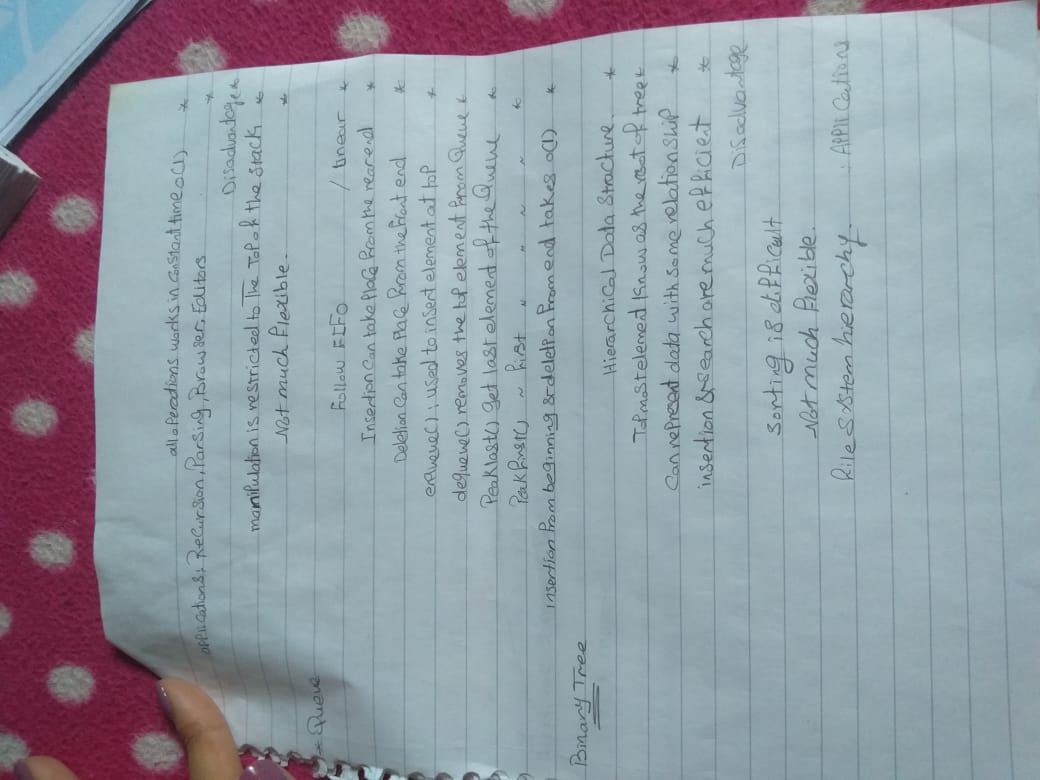 all operations works in constant time o(1) *
applications: Recursion, Parsing, Browser, Editors *
Disadvantage *
manipulation is restricted to The Top of the stack *
Not much flexible. *
- Queue
Follow FIFO / linear *
Insertion Can take place from the rear end *
Deletion Can take place from the front end *
enqueue() : used to insert element at top *
dequeue() removes the top element from Queue *
Peaklast() get last element of the Queue *
Peakfirst() ~ first " " ~ ~ *
insertion from beginning & deletion from end takes o(1) *
Binary Tree
Hierarchical Data Structure. *
Topmost element know as the root of tree *
Can represent data with some relationship *
insertion & search are much efficient *
Disadvantage
Sorting is difficult
Not much flexible.
file system hierarchy. : Applications